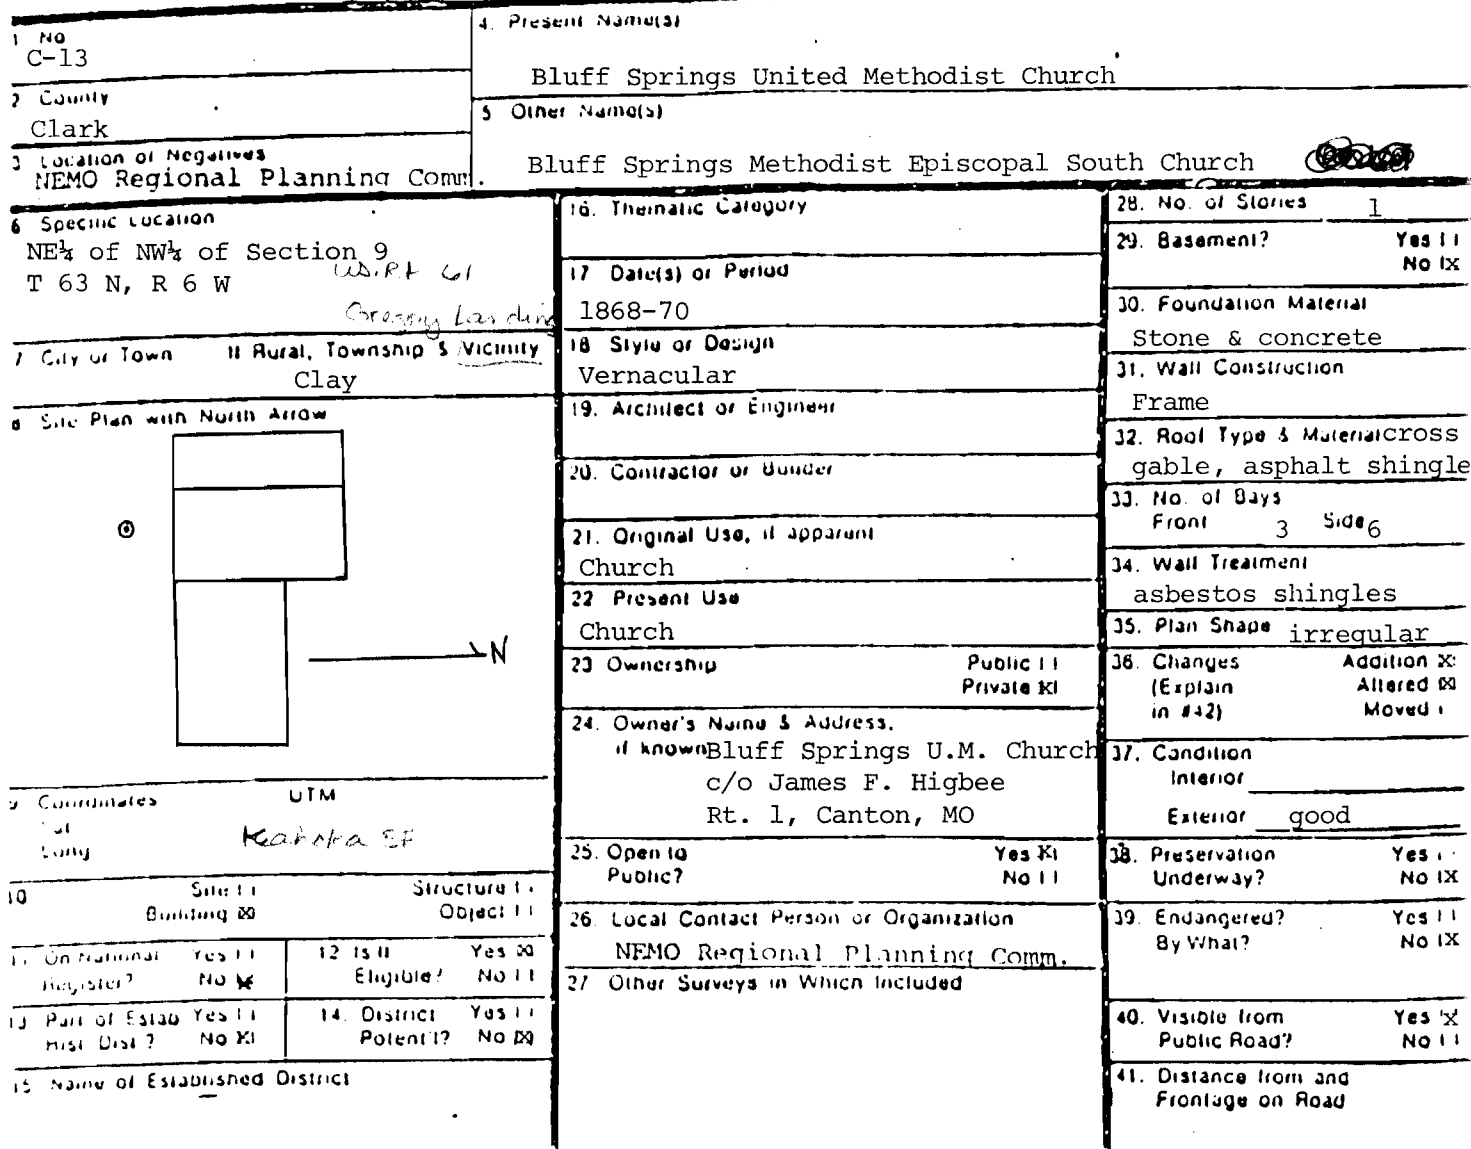 1 No
C-13
2 County
Clark
3 Location of Negatives
NEMO Regional Planning Comm.
4. Present Name(s)
Bluff Springs United Methodist Church
5 Other Name(s)
Bluff Springs Methodist Episcopal South Church
6 Specific Location
NE¼ of NW¼ of Section 9
T 63 N, R 6 W
US.Rt 61
Gregory Landing
7 City or Town If Rural, Township & Vicinity
Clay
8 Site Plan with North Arrow
N
9 Coordinates UTM
Lat
Long
Kahoka SE
10 Site Structure
Building ☒ Object
11 On National Register? Yes
No X
12 Is It Eligible? Yes ☒
No
13 Part of Estab Hist Dist? Yes
No X
14. District Potent'l? Yes
No ☒
15 Name of Established District
16. Thematic Category
17 Date(s) or Period
1868-70
18 Style or Design
Vernacular
19. Architect or Engineer
20. Contractor or Builder
21. Original Use, if apparent
Church
22 Present Use
Church
23 Ownership Public
Private X
24. Owner's Name & Address,
if known Bluff Springs U.M. Church
c/o James F. Higbee
Rt. 1, Canton, MO
25. Open to Yes X
Public? No
26. Local Contact Person or Organization
NEMO Regional Planning Comm.
27 Other Surveys in Which Included
28. No. of Stories 1
29. Basement? Yes
No X
30. Foundation Material
Stone & concrete
31. Wall Construction
Frame
32. Roof Type & Material cross
gable, asphalt shingle
33. No. of Bays
Front 3 Side 6
34. Wall Treatment
asbestos shingles
35. Plan Shape irregular
36. Changes Addition X
(Explain Altered ☒
in #42) Moved
37. Condition
Interior
Exterior good
38. Preservation Yes
Underway? No X
39. Endangered? Yes
By What? No X
40. Visible from Yes X
Public Road? No
41. Distance from and
Frontage on Road